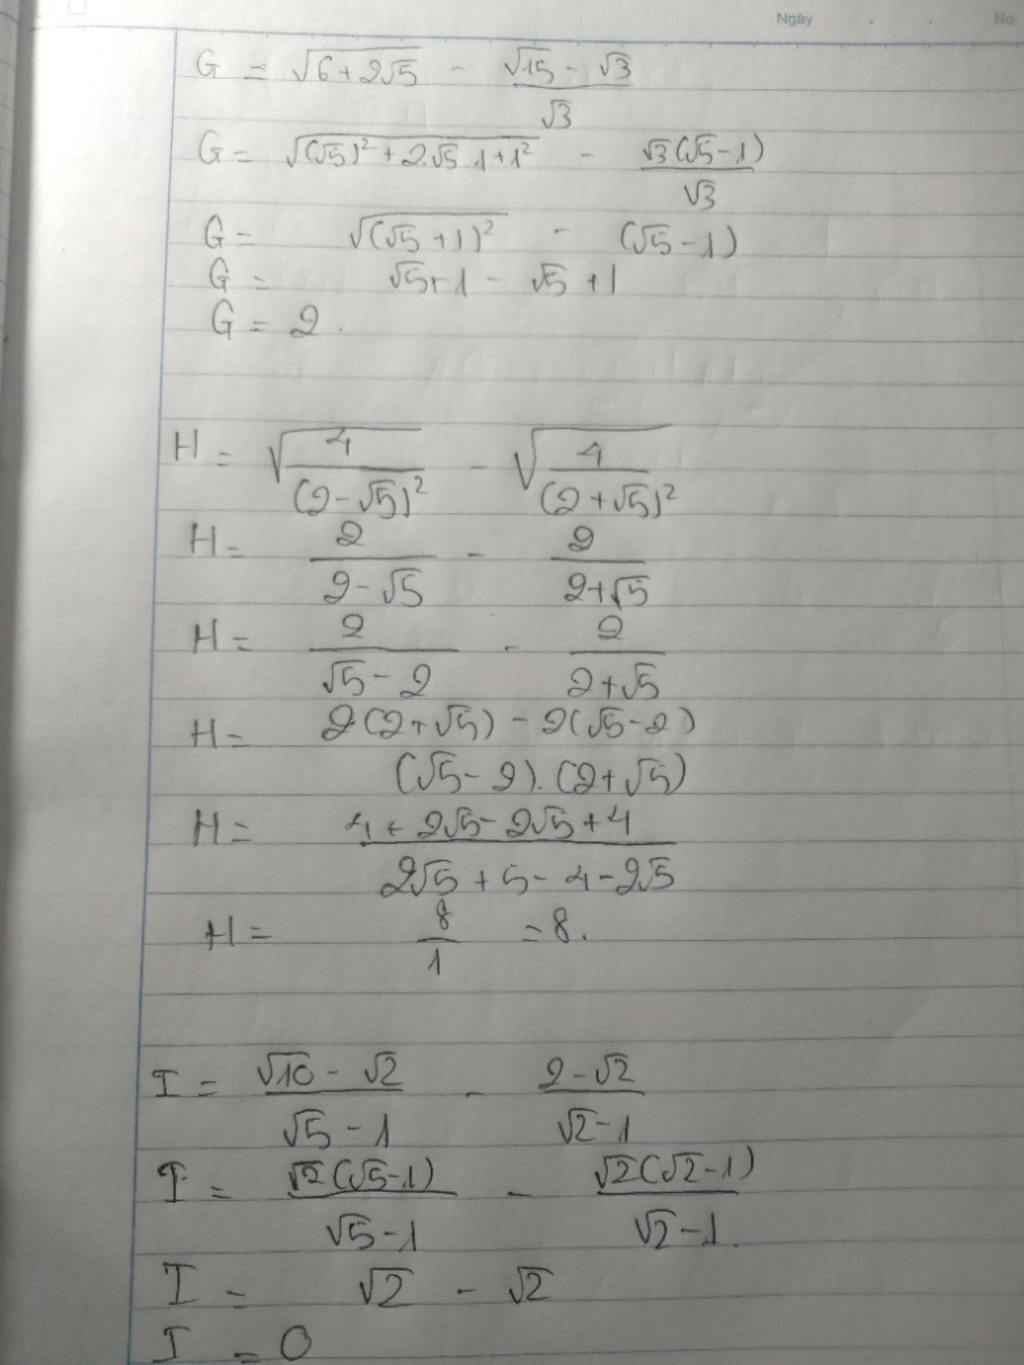 Ngày . . No.
G = √(6+2√5) - (√15 - √3)/√3
G = √((√5)² + 2.√5.1+1²) - √3(√5-1)/√3
G = √((√5+1)²) - (√5-1)
G = √5+1 - √5+1
G = 2.
H = √(4/(2-√5)²) - √(4/(2+√5)²)
H = 2/(2-√5) - 2/(2+√5)
H = 2/(√5-2) - 2/(2+√5)
H = 2(2+√5) - 2(√5-2) / (√5-2).(2+√5)
H = (4+2√5-2√5+4)/(2√5+5-4-2√5)
H = 8/1 = 8.
I = (√10-√2)/(√5-1) - (2-√2)/(√2-1)
I = √2(√5-1)/(√5-1) - √2(√2-1)/(√2-1)
I = √2 - √2
I = 0